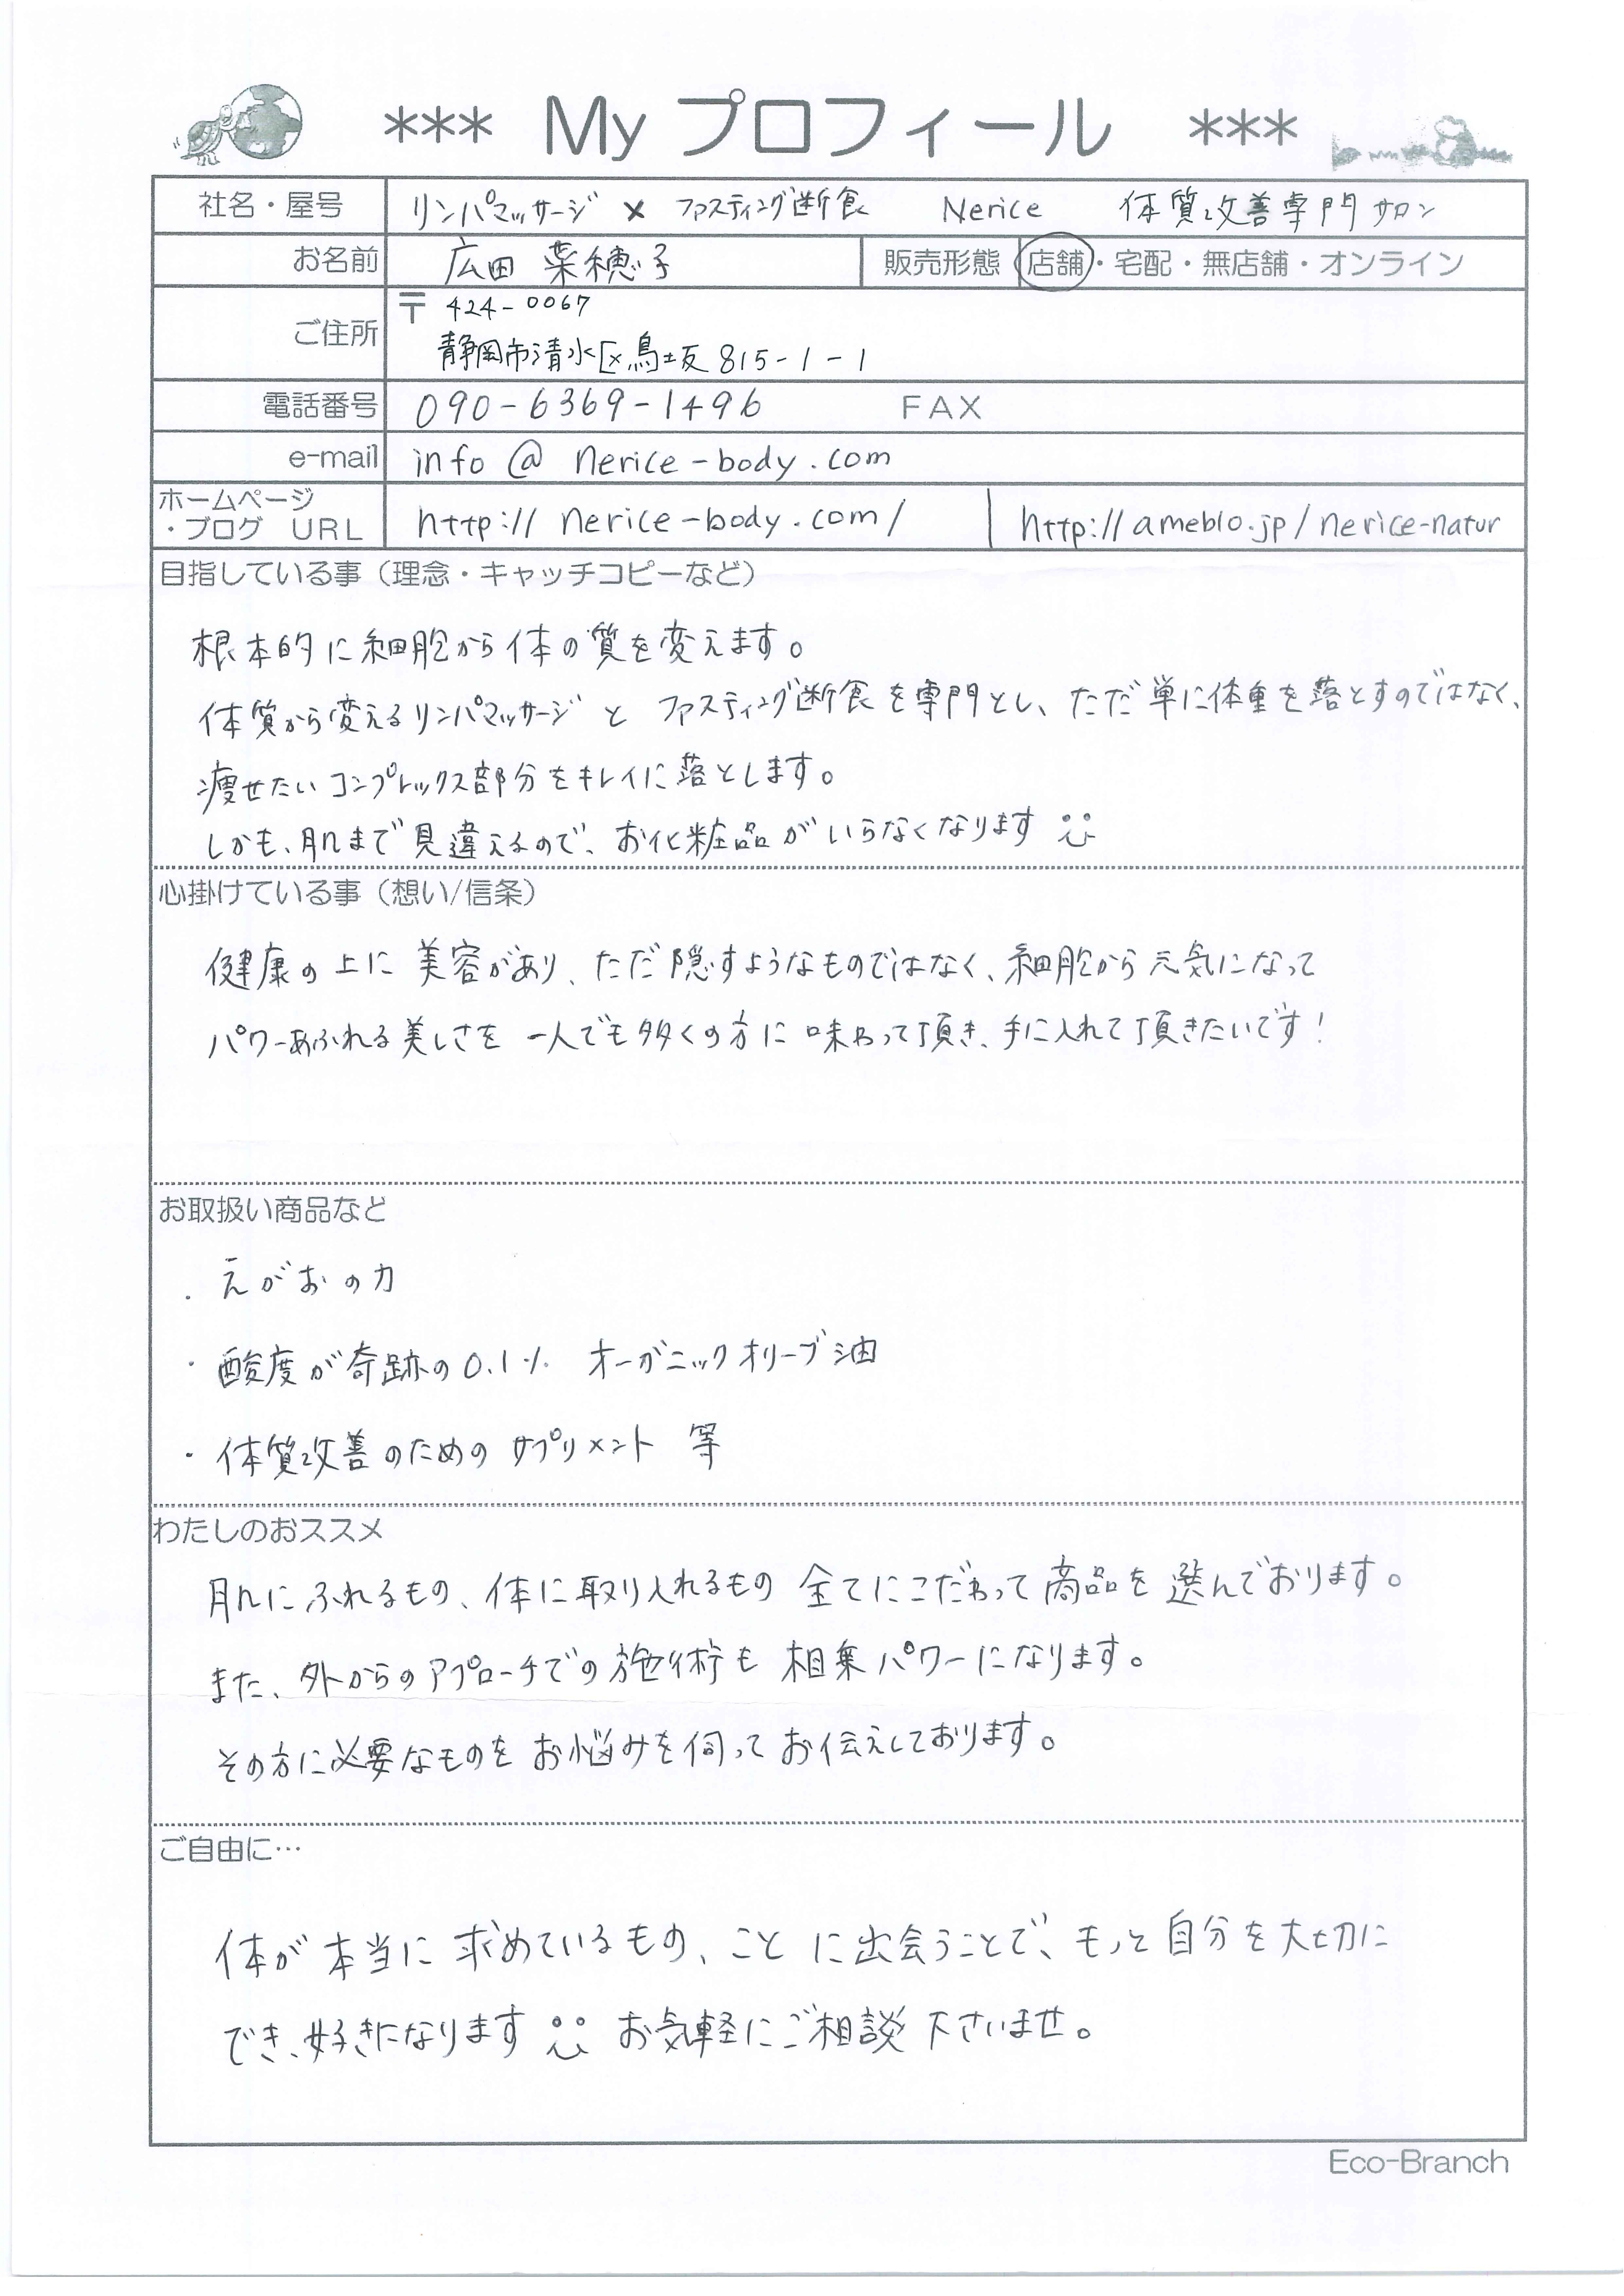 *** My プロフィール ***
社名・屋号 リンパマッサージ × ファスティング断食 Nerice 体質改善専門サロン
お名前 広田 菜穂子 販売形態 店舗・宅配・無店舗・オンライン
ご住所 〒 424-0067
静岡市清水区鳥坂 815-1-1
電話番号 090-6369-1496 FAX
e-mail info@nerice-body.com
ホームページ
・ブログ URL http://nerice-body.com/ | http://ameblo.jp/nerice-natur
目指している事（理念・キャッチコピーなど）
根本的に細胞から体の質を変えます。
体質から変えるリンパマッサージと ファスティング断食を専門とし、ただ単に体重を落とすのではなく、
痩せたいコンプレックス部分をキレイに落とします。
しかも、肌まで見違えるので、お化粧品がいらなくなります
心掛けている事（想い/信条）
健康の上に美容があり、ただ隠すようなものではなく、細胞から元気になって
パワーあふれる美しさを 一人でも多くの方に味わって頂き、手に入れて頂きたいです！
お取扱い商品など
・えがおの力
・酸度が奇跡の0.1% オーガニックオリーブ油
・体質改善のための サプリメント 等
わたしのおススメ
肌にふれるもの、体に取り入れるもの 全てにこだわって商品を選んでおります。
また、外からのアプローチでの施術も 相乗パワーになります。
その方に必要なものをお悩みを伺ってお伝えしております。
ご自由に…
体が本当に求めているもの、ことに出会うことで、もっと自分を大切に
でき、好きになります お気軽にご相談下さいませ。
Eco-Branch